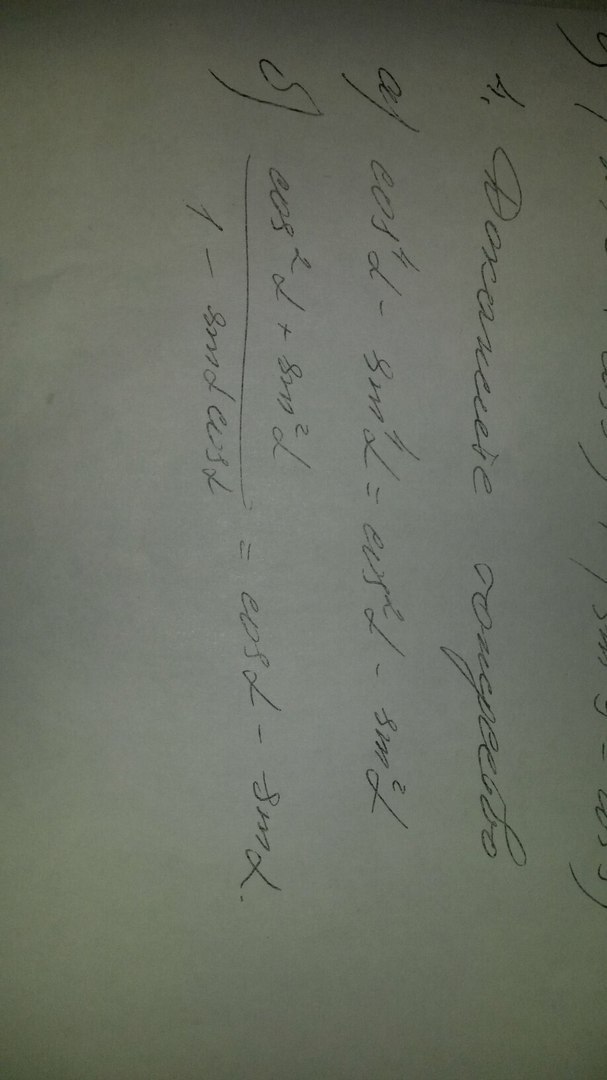 4. Докажите тождество
а) cos⁴α - sin⁴α = cos²α - sin²α
б) cos²α + sin²α / 1 - sinα cosα = cosα - sinα.